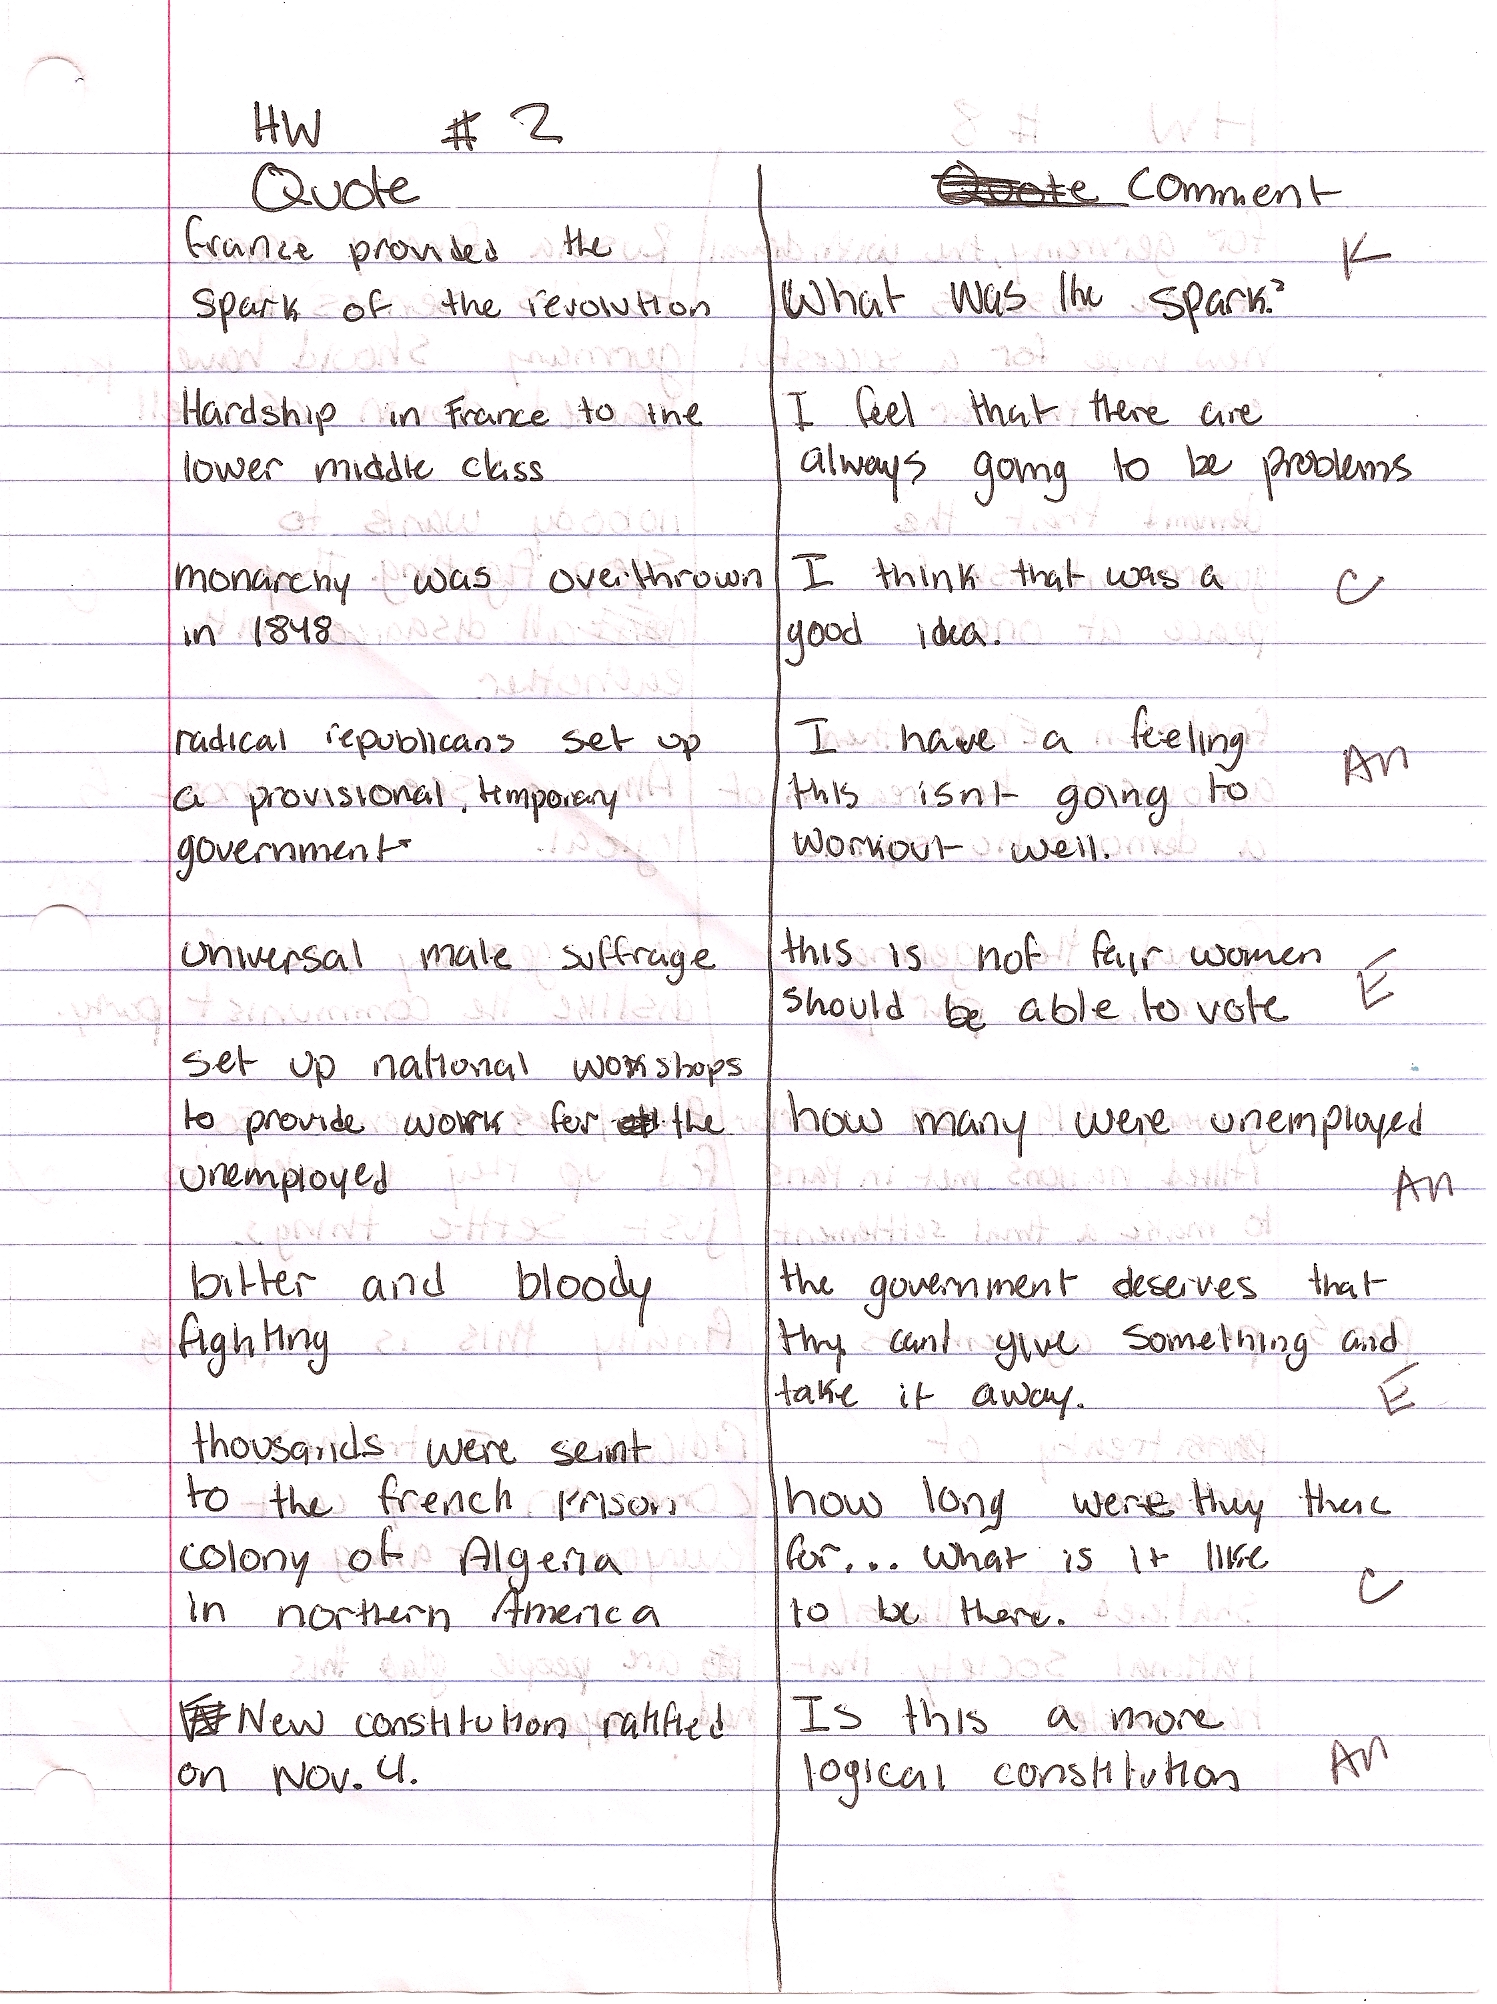 HW # 2
Quote
Comment
france provided the
spark of the revolution
What was the spark?
K
Hardship in France to the
lower middle class
I feel that there are
always going to be problems
monarchy was overthrown
in 1848
I think that was a
good idea.
C
radical republicans set up
a provisional, temporary
government
I have a feeling
this isnt going to
workout well.
An
universal male suffrage
this is not fair women
should be able to vote
E
set up national workshops
to provide work for the
unemployed
how many were unemployed
An
bitter and bloody
fighting
the government deserves that
they cant give something and
take it away.
E
thousands were sent
to the french prison
colony of Algeria
in northern America
how long were they there
for... what is it like
to be there.
C
New constitution ratified
on Nov. 4.
Is this a more
logical constitution
An